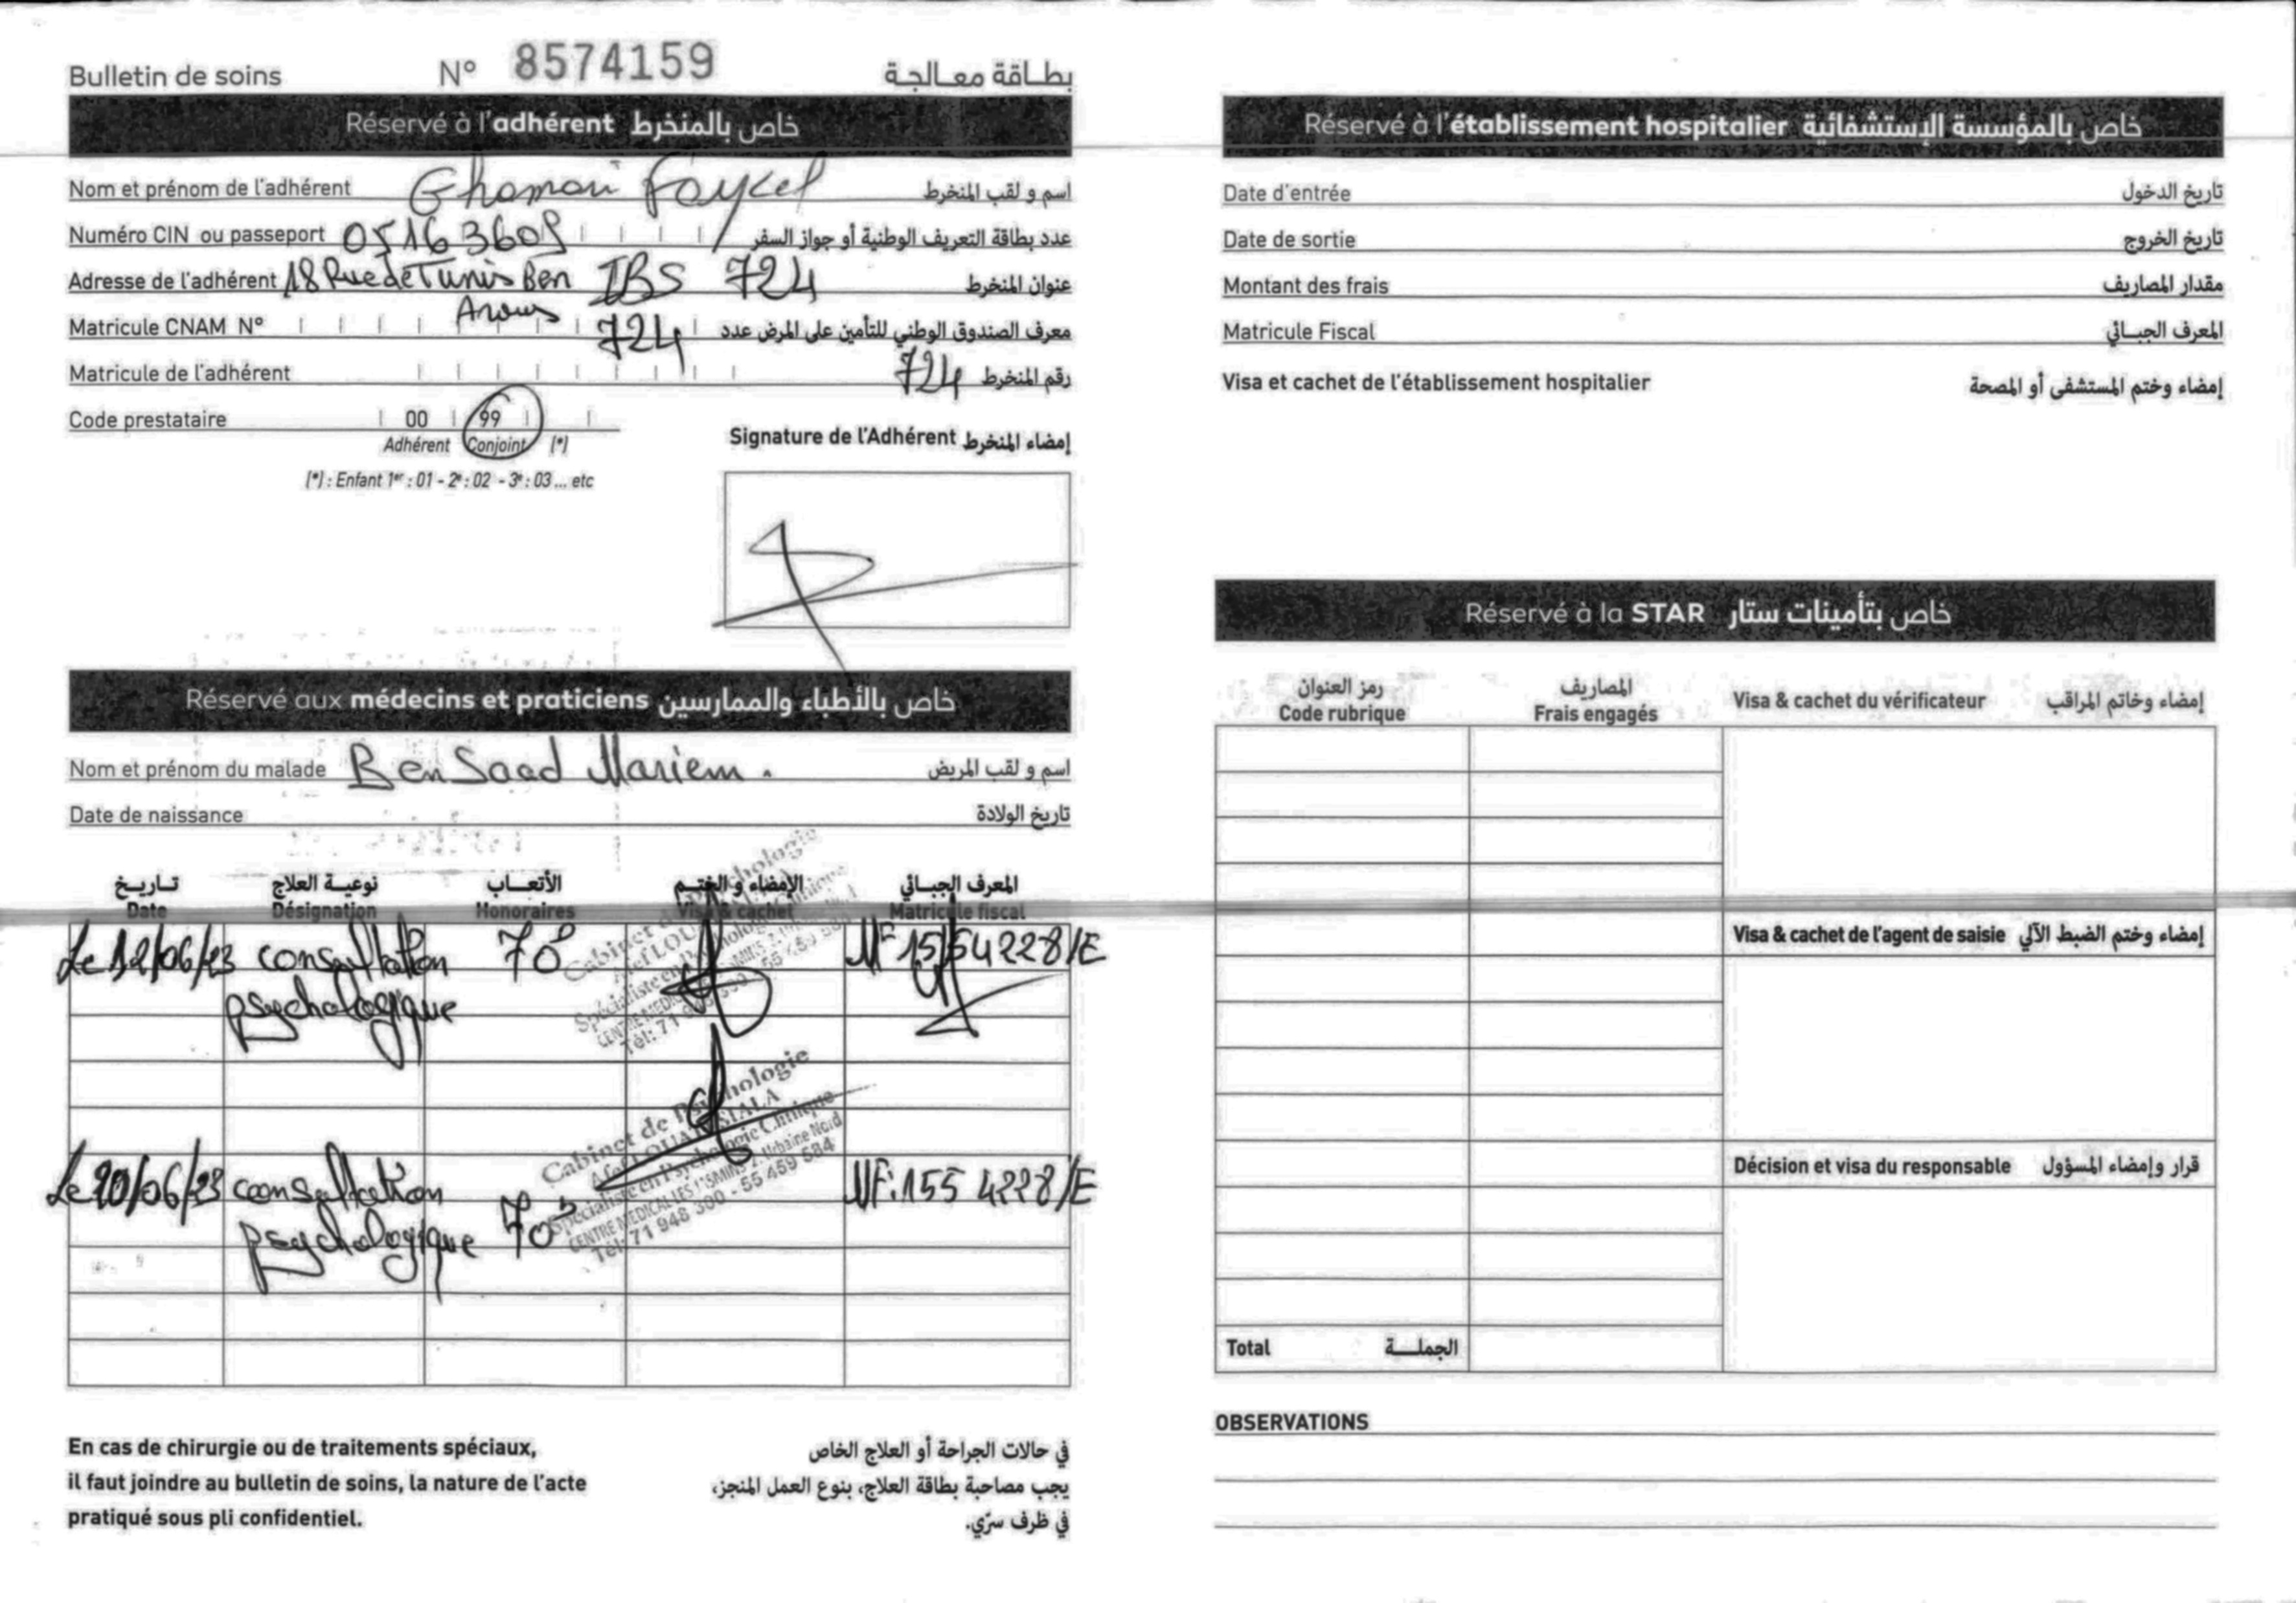 Bulletin de soins N° 8574159 بطاقة معالجة
Réservé à l'adhérent خاص بالمنخرط
Nom et prénom de l'adhérent Ghamari Fayçel اسم و لقب المنخرط
Numéro CIN ou passeport 05163605 عدد بطاقة التعريف الوطنية أو جواز السفر
Adresse de l'adhérent 18 Rue de Tunis Ben Arous IBS 724 عنوان المنخرط
Matricule CNAM N° 724 معرف الصندوق الوطني للتأمين على المرض عدد
Matricule de l'adhérent 724 رقم المنخرط
Code prestataire 00 99
Adhérent Conjoint (*)
(*) : Enfant 1er : 01 - 2e : 02 - 3e : 03 ... etc
Signature de l'Adhérent إمضاء المنخرط
Réservé aux médecins et praticiens خاص بالأطباء والممارسين
Nom et prénom du malade Ben Saad Mariem . اسم و لقب المريض
Date de naissance تاريخ الولادة
تاريخ نوعية العلاج الأتعاب الإمضاء و الختم المعرف الجبائي
Date Désignation Honoraires Visa & cachet Matricule fiscal
Le 12/06/23 consultation psychologique 70 MF 1554228/E
Le 20/06/23 consultation psychologique 70 MF: 1554228/E
Cabinet de Psychologie
Spécialiste en Psychologie Clinique
CENTRE MEDICAL LES JASMINS Z. Urbaine Nord
Tél: 71 948 300 - 55 459 584
En cas de chirurgie ou de traitements spéciaux,
il faut joindre au bulletin de soins, la nature de l'acte
pratiqué sous pli confidentiel.
في حالات الجراحة أو العلاج الخاص
يجب مصاحبة بطاقة العلاج، بنوع العمل المنجز،
في ظرف سرّي.
Réservé à l'établissement hospitalier خاص بالمؤسسة الإستشفائية
Date d'entrée تاريخ الدخول
Date de sortie تاريخ الخروج
Montant des frais مقدار المصاريف
Matricule Fiscal المعرف الجبائي
Visa et cachet de l'établissement hospitalier إمضاء وختم المستشفى أو المصحة
Réservé à la STAR خاص بتأمينات ستار
رمز العنوان المصاريف
Code rubrique Frais engagés Visa & cachet du vérificateur إمضاء وخاتم المراقب
Visa & cachet de l'agent de saisie إمضاء وختم الضبط الآلي
Décision et visa du responsable قرار وإمضاء المسؤول
Total الجملة
OBSERVATIONS